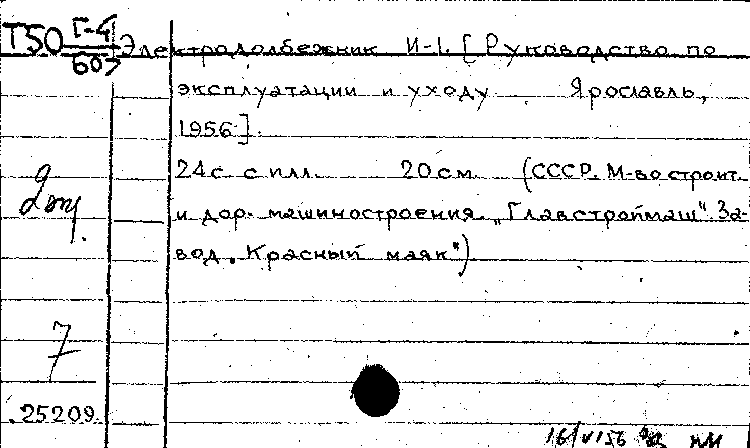 Т50 Г-4
607
Электродолбежник И-1. [Руководство по
эксплуатации и уходу Ярославль,
1956].
24с. с илл. 20см. (СССР. М-во строит.
и дор. машиностроения. „Главстроймаш". За-
вод „Красный маяк")
7
25209
16/VI56